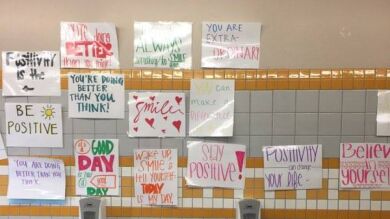 Positivity
is the
You're doing
BETTER
than you think
ALWAYS
something to SMILE
YOU ARE
EXTRA-
ORDINARY
YOU'RE DOING
BETTER
THAN
YOU THINK!
BE
POSITIVE
Smile
YOU can
make a
difference
YOU ARE DOING
BETTER THAN YOU
THINK
GOOD
DAY
DAY
WAKE UP
SMILE &
tell YOURSELF
TODAY
is MY DAY.
STAY
POSITIVE!
POSITIVITY
can change
your life
Believe
in
yourself